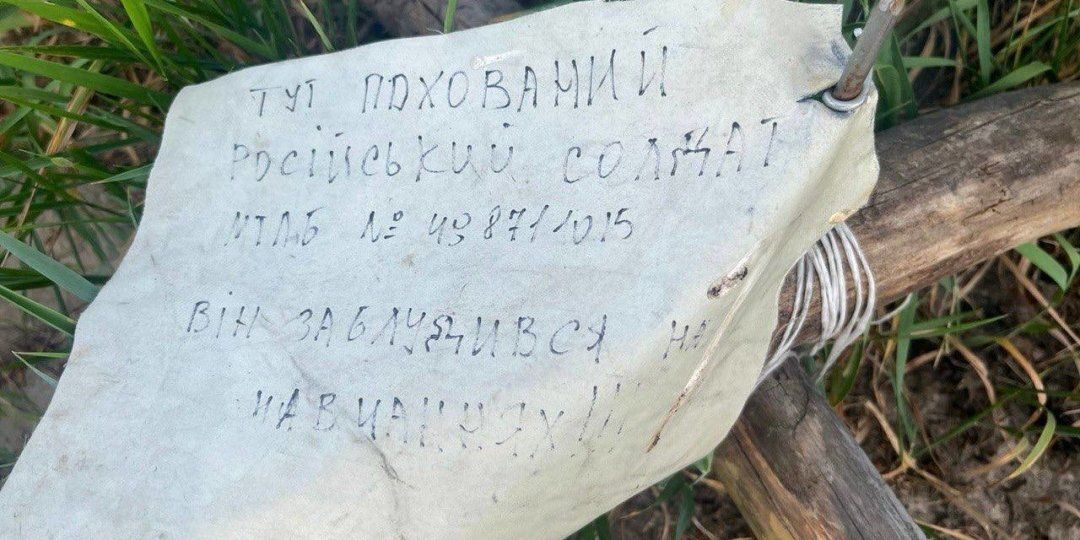 ТУТ ПОХОВАНИЙ
РОСІЙСЬКИЙ СОЛДАТ
МТЛБ №
ВІН ЗАБЛУДИВСЯ НА
НАВЧАННЯХ!!!